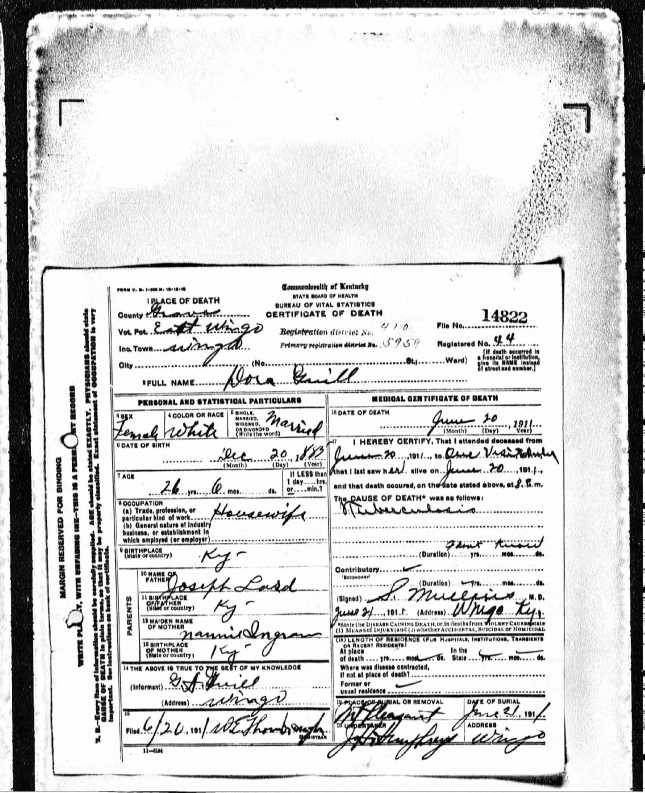 FORM V. S. 1-
Commonwealth of Kentucky
STATE BOARD OF HEALTH
BUREAU OF VITAL STATISTICS
CERTIFICATE OF DEATH
1 PLACE OF DEATH
County Graves
Vot. Pct. East Wingo
Inc. Town Wingo
City (No. St.; Ward)
Registration district No. 410
Primary registration district No. 5959
File No. 14822
Registered No. 44
[If death occurred in a hospital or institution, give its NAME instead of street and number.]
2 FULL NAME Dora Guill
PERSONAL AND STATISTICAL PARTICULARS
3 SEX Female
4 COLOR OR RACE White
5 SINGLE, MARRIED, WIDOWED, OR DIVORCED (Write the word) Married
6 DATE OF BIRTH Dec 20, 1883
(Month) (Day) (Year)
7 AGE 26 yrs. 6 mos. ds.
If LESS than 1 day hrs. or min.?
8 OCCUPATION
(a) Trade, profession, or particular kind of work Housewife
(b) General nature of industry business, or establishment in which employed (or employer)
9 BIRTHPLACE (State or country) Ky
PARENTS
10 NAME OF FATHER Joseph Ladd
11 BIRTHPLACE OF FATHER (State or country) Ky
12 MAIDEN NAME OF MOTHER Nannie Ingram
13 BIRTHPLACE OF MOTHER (State or country) Ky
14 THE ABOVE IS TRUE TO THE BEST OF MY KNOWLEDGE
(Informant) Guill
(Address) Wingo
15
Filed 6/20, 1911
REGISTRAR
MEDICAL CERTIFICATE OF DEATH
16 DATE OF DEATH June 20, 1911
(Month) (Day) (Year)
17 I HEREBY CERTIFY, That I attended deceased from
June 20, 1911, to One Visit
that I last saw her alive on June 20, 1911,
and that death occurred, on the date stated above, at 8 P.m.
The CAUSE OF DEATH* was as follows:
Tuberculosis
Dont Know
(Duration) yrs. mos. ds.
Contributory
(SECONDARY)
(Duration) yrs. mos. ds.
(Signed) S. M. D.
June 21, 1911 (Address) Wingo Ky.
*State the DISEASE CAUSING DEATH, or, in deaths from VIOLENT CAUSES state (1) MEANS OF INJURY; and (2) whether ACCIDENTAL, SUICIDAL OR HOMICIDAL.
18 LENGTH OF RESIDENCE (FOR HOSPITALS, INSTITUTIONS, TRANSIENTS OR RECENT RESIDENTS)
At place of death yrs. mos. ds. In the State yrs. mos. ds.
Where was disease contracted, if not at place of death?
Former or usual residence
19 PLACE OF BURIAL OR REMOVAL Mt Pleasant
DATE OF BURIAL June 21, 1911
20 UNDERTAKER Humphreys
ADDRESS Wingo
11-5184
MARGIN RESERVED FOR BINDING
WRITE PLAINLY, WITH UNFADING INK—THIS IS A PERMANENT RECORD
N. B.—Every item of information should be carefully supplied. AGE should be stated EXACTLY. PHYSICIANS should state CAUSE OF DEATH in plain terms, so that it may be properly classified. Exact statement of OCCUPATION is very important. See instructions on back of certificate.